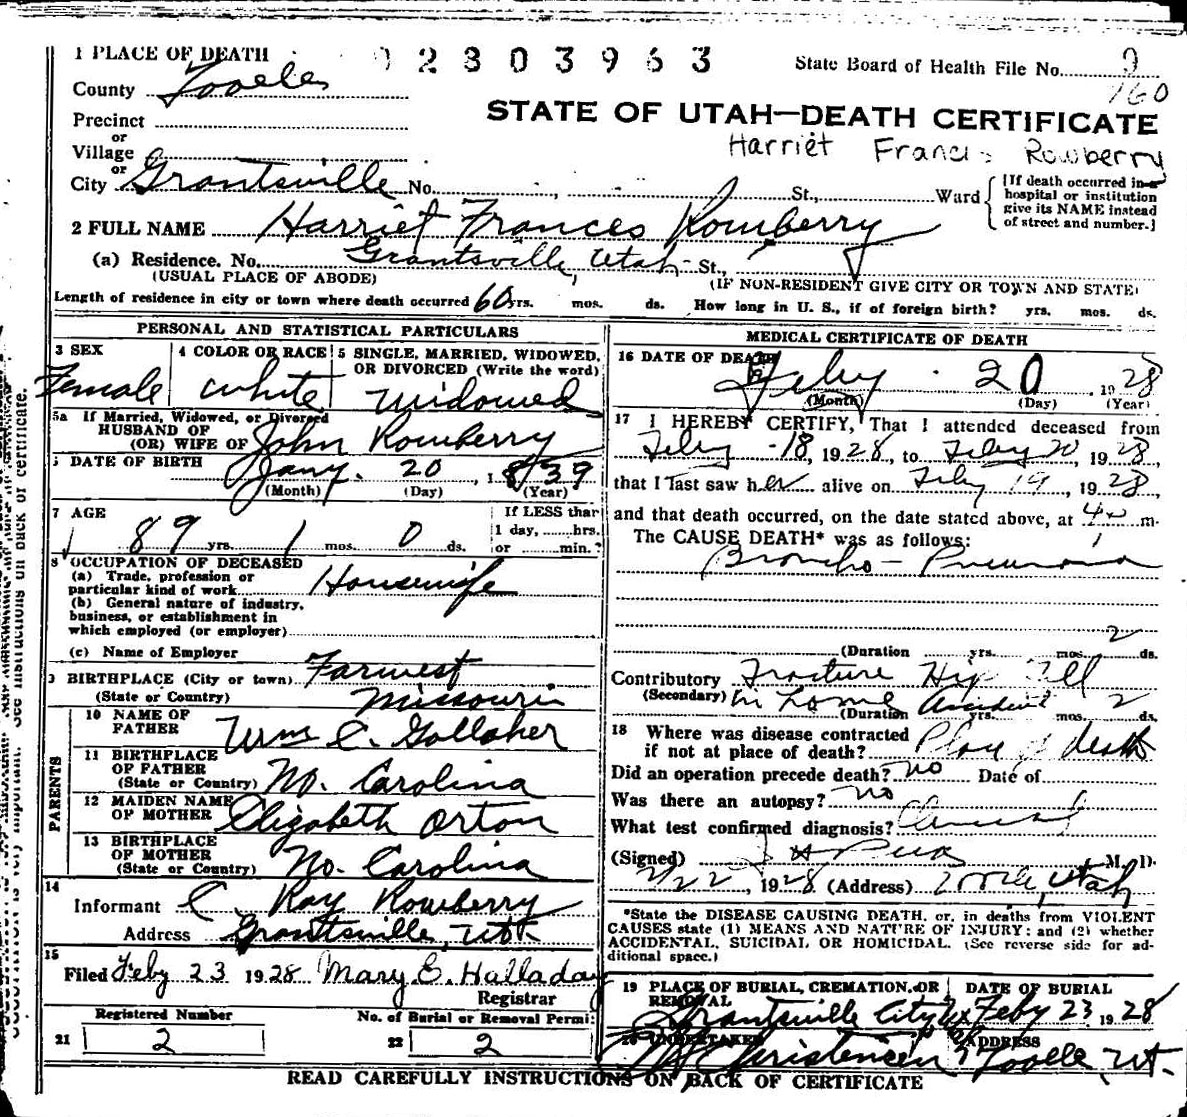 1 PLACE OF DEATH
02303963
State Board of Health File No. 9
160
County Tooele
STATE OF UTAH—DEATH CERTIFICATE
Precinct
Harriet Francis Rowberry
or
Village
or
City Grantsville No. St., Ward
[If death occurred in a hospital or institution give its NAME instead of street and number.]
2 FULL NAME Harriet Frances Rowberry
(a) Residence. No. Grantsville, Utah St.,
(USUAL PLACE OF ABODE) (IF NON-RESIDENT GIVE CITY OR TOWN AND STATE)
Length of residence in city or town where death occurred 60 yrs. mos. ds. How long in U. S., if of foreign birth? yrs. mos. ds.
PERSONAL AND STATISTICAL PARTICULARS
3 SEX
Female
4 COLOR OR RACE
White
5 SINGLE, MARRIED, WIDOWED, OR DIVORCED (Write the word)
Widowed
5a If Married, Widowed, or Divorced
HUSBAND OF
(OR) WIFE OF John Rowberry
DATE OF BIRTH
Jany. 20, 1839
(Month) (Day) (Year)
7 AGE
89 yrs. 1 mos. 0 ds.
If LESS than
1 day, hrs.
or min.
8 OCCUPATION OF DECEASED
(a) Trade, profession or
particular kind of work Housewife
(b) General nature of industry,
business, or establishment in
which employed (or employer)
(c) Name of Employer
9 BIRTHPLACE (City or town) Farwest
(State or Country) Missouri
PARENTS
10 NAME OF
FATHER Wm C. Gollaher
11 BIRTHPLACE
OF FATHER
(State or Country) No. Carolina
12 MAIDEN NAME
OF MOTHER Elizabeth Orton
13 BIRTHPLACE
OF MOTHER
(State or Country) No. Carolina
14
Informant C. Ray Rowberry
Address Grantsville, Utah
15
Filed Feby 23 1928 Mary E. Halladay
Registrar
Registered Number
21 2
No. of Burial or Removal Permit
22 2
MEDICAL CERTIFICATE OF DEATH
16 DATE OF DEATH
Feby 20 1928
(Month) (Day) (Year)
17 I HEREBY CERTIFY, That I attended deceased from
Feby 18, 1928, to Feby 20, 1928,
that I last saw her alive on Feby 19, 1928,
and that death occurred, on the date stated above, at 4 m.
The CAUSE DEATH* was as follows:
Broncho-Pneumonia
2
(Duration yrs. mos. ds.
Contributory Fracture Hip Fell
(Secondary) In home Accident 2
(Duration yrs. mos. ds.
18 Where was disease contracted
if not at place of death? Place of death
Did an operation precede death? no Date of
Was there an autopsy? no
What test confirmed diagnosis? Clinical
(Signed) J H Peck M. D.
2/22, 1928 (Address) Tooele, Utah
*State the DISEASE CAUSING DEATH, or, in deaths from VIOLENT
CAUSES state (1) MEANS AND NATURE OF INJURY; and (2) whether
ACCIDENTAL, SUICIDAL OR HOMICIDAL. (See reverse side for ad-
ditional space.)
19 PLACE OF BURIAL, CREMATION, OR
REMOVAL
Grantsville City
DATE OF BURIAL
Feby 23 1928
20 UNDERTAKER
Christensen
ADDRESS
Tooele, Ut.
READ CAREFULLY INSTRUCTIONS ON BACK OF CERTIFICATE
See instructions on back of certificate.